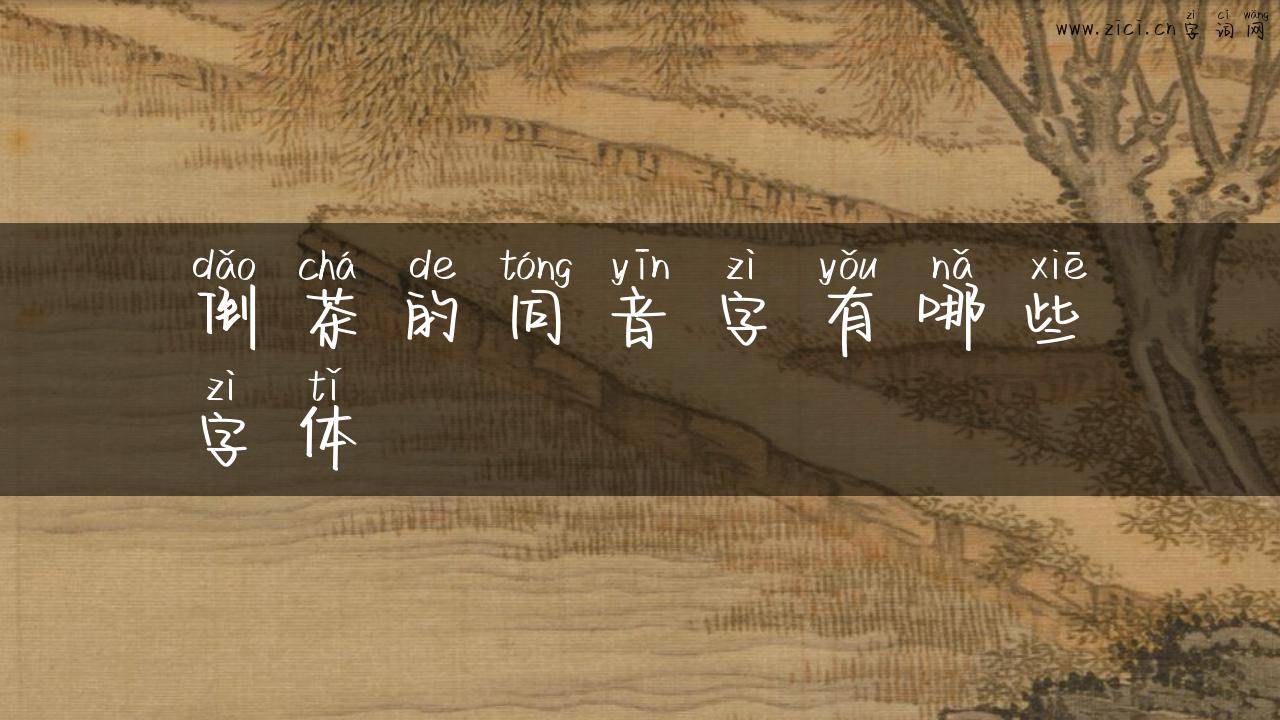 zì cí wǎng
www.zici.cn字词网
dǎo chá de tóng yīn zì yǒu nǎ xiē
倒茶的同音字有哪些
zì tǐ
字体